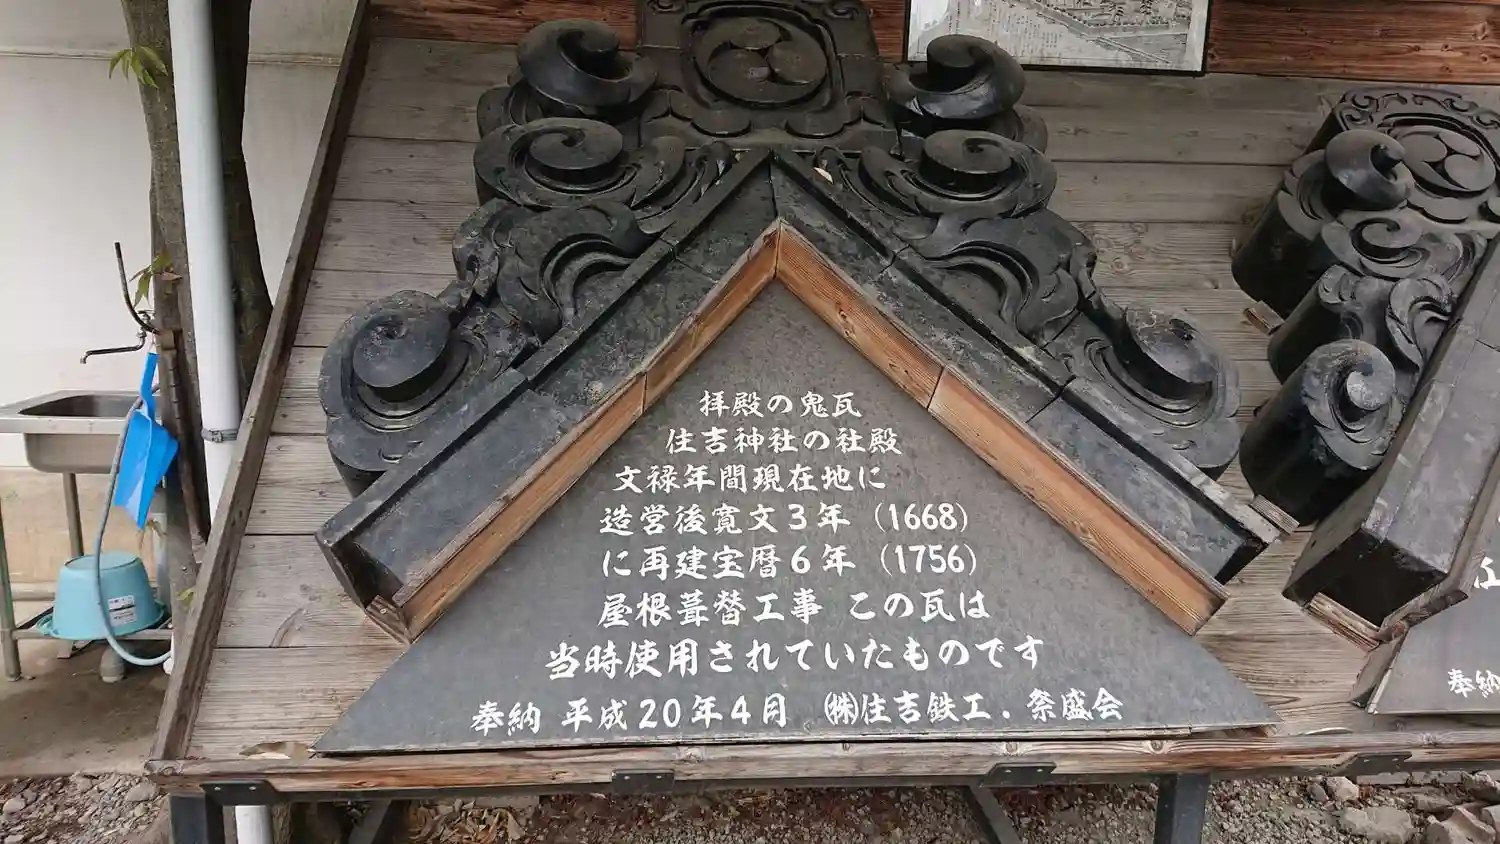 拝殿の鬼瓦
住吉神社の社殿
文禄年間現在地に
造営後寛文3年（1668）
に再建宝暦6年（1756）
屋根葺替工事 この瓦は
当時使用されていたものです
奉納 平成20年4月 ㈱住吉鉄工．祭盛会
奉納